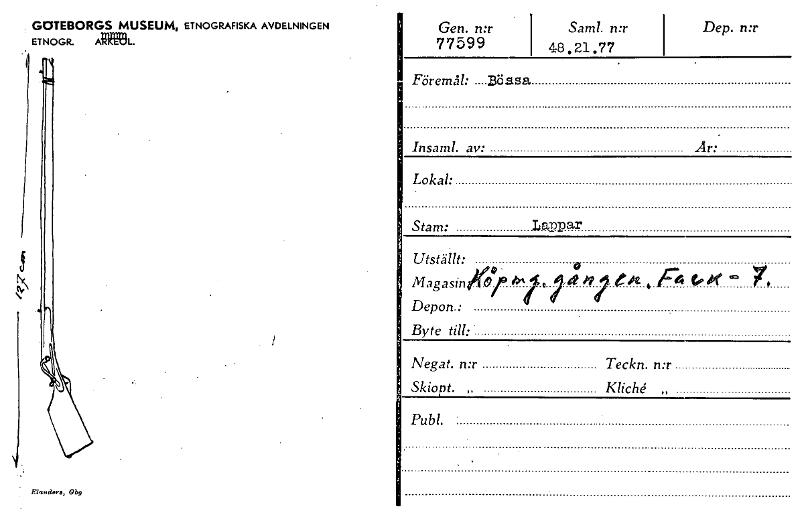 GÖTEBORGS MUSEUM, ETNOGRAFISKA AVDELNINGEN
ETNOGR. ARKEOL.
127 cm
Elanders, Gbg
Gen. n:r Saml. n:r Dep. n:r
77599 48.21.77
Föremål: Bössa
Insaml. av: År:
Lokal:
Stam: Lappar
Utställt:
Magasin Köpmg. gången. Fack - 7.
Depon.:
Byte till:
Negat. n:r Teckn. n:r
Skiopt. „ Kliché „
Publ.